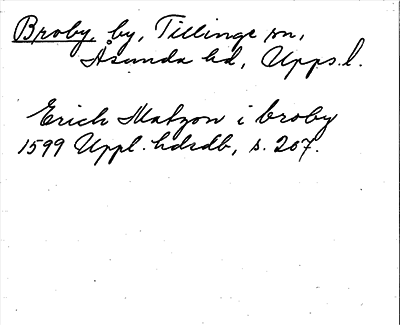 Broby, by, Tillinge sn,
Åsunda hd, Upps. l.
Erich Matzon i broby
1599 Uppl. hdrdb, s. 207.